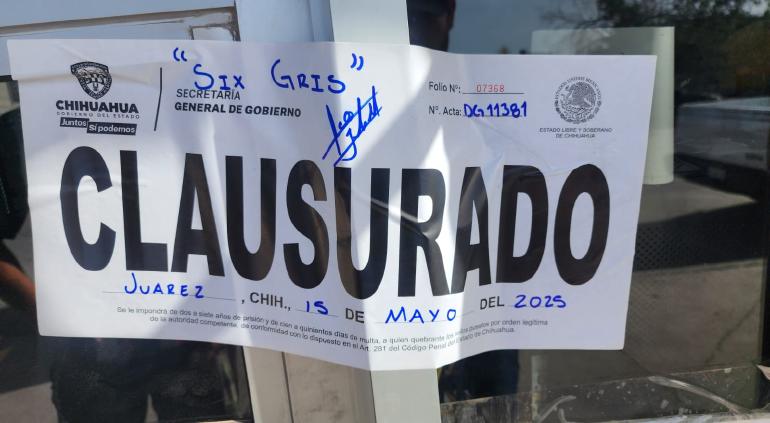 "SIX GRIS"
CHIHUAHUA
GOBIERNO DEL ESTADO
Juntos Sí podemos
SECRETARÍA
GENERAL DE GOBIERNO
Folio N°: 07368
N°. Acta: DG11381
ESTADO LIBRE Y SOBERANO
DE CHIHUAHUA
CLAUSURADO
JUAREZ, CHIH., 15 DE MAYO DEL 2025
Se le impondrá de dos a siete años de prisión y de cien a quinientos días de multa, a quien quebrante los sellos puestos por orden legítima
de la autoridad competente, de conformidad con lo dispuesto en el Art. 281 del Código Penal del Estado de Chihuahua.